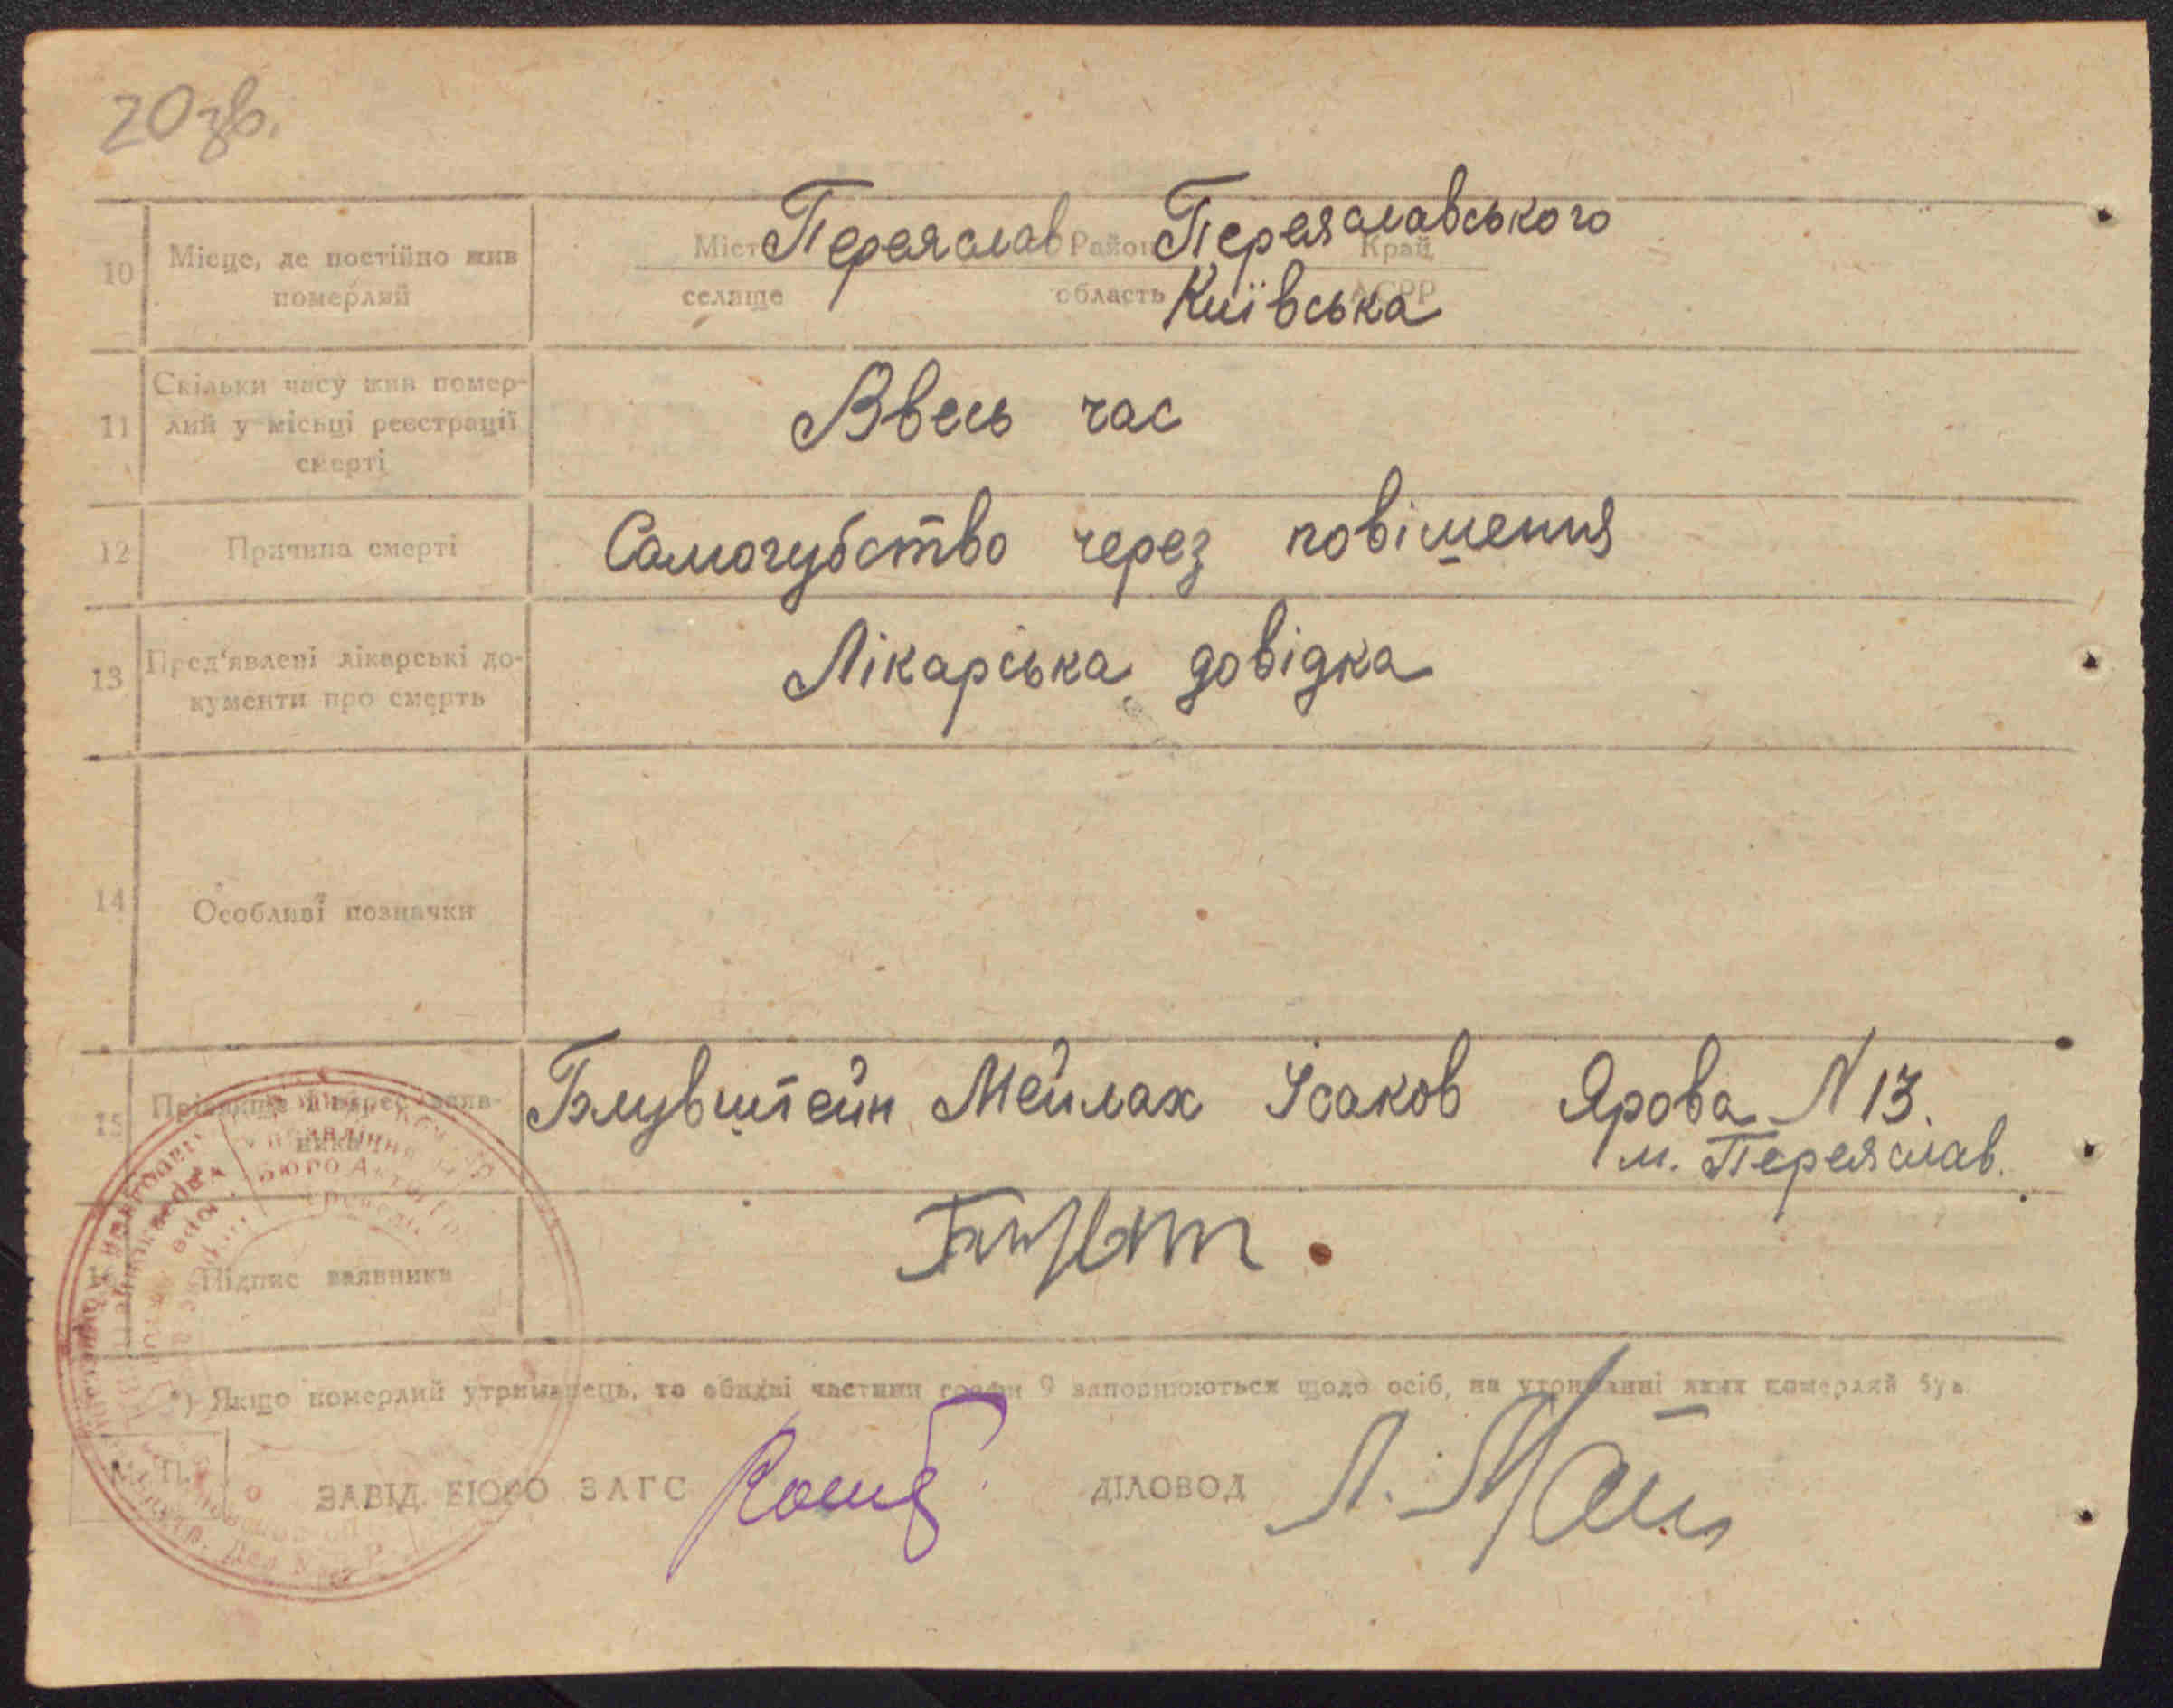 20 зв.
10 Місце, де постійно жив померлий
Місто Переяслав Район Переяславського Край
селище область Київська АСРР
11 Скільки часу жив помер-
лий у місьці реєстрації
смерті
Ввесь час
12 Причина смерті Самогубство через повішення
13 Пред'явлені лікарські до-
кументи про смерть
Лікарська довідка
14 Особливі позначки
15 Прізвище й адрес заяв-
ника
Блувштейн Мейлах Ісаков Ярова N 13.
м. Переяслав.
16 Підпис заявника
*) Якщо померлий утриманець, то обидві частини графи 9 заповнюються щодо осіб, на утриманні яких померлий був
М. П.
ЗАВІД. БЮРО ЗАГС ДІЛОВОД